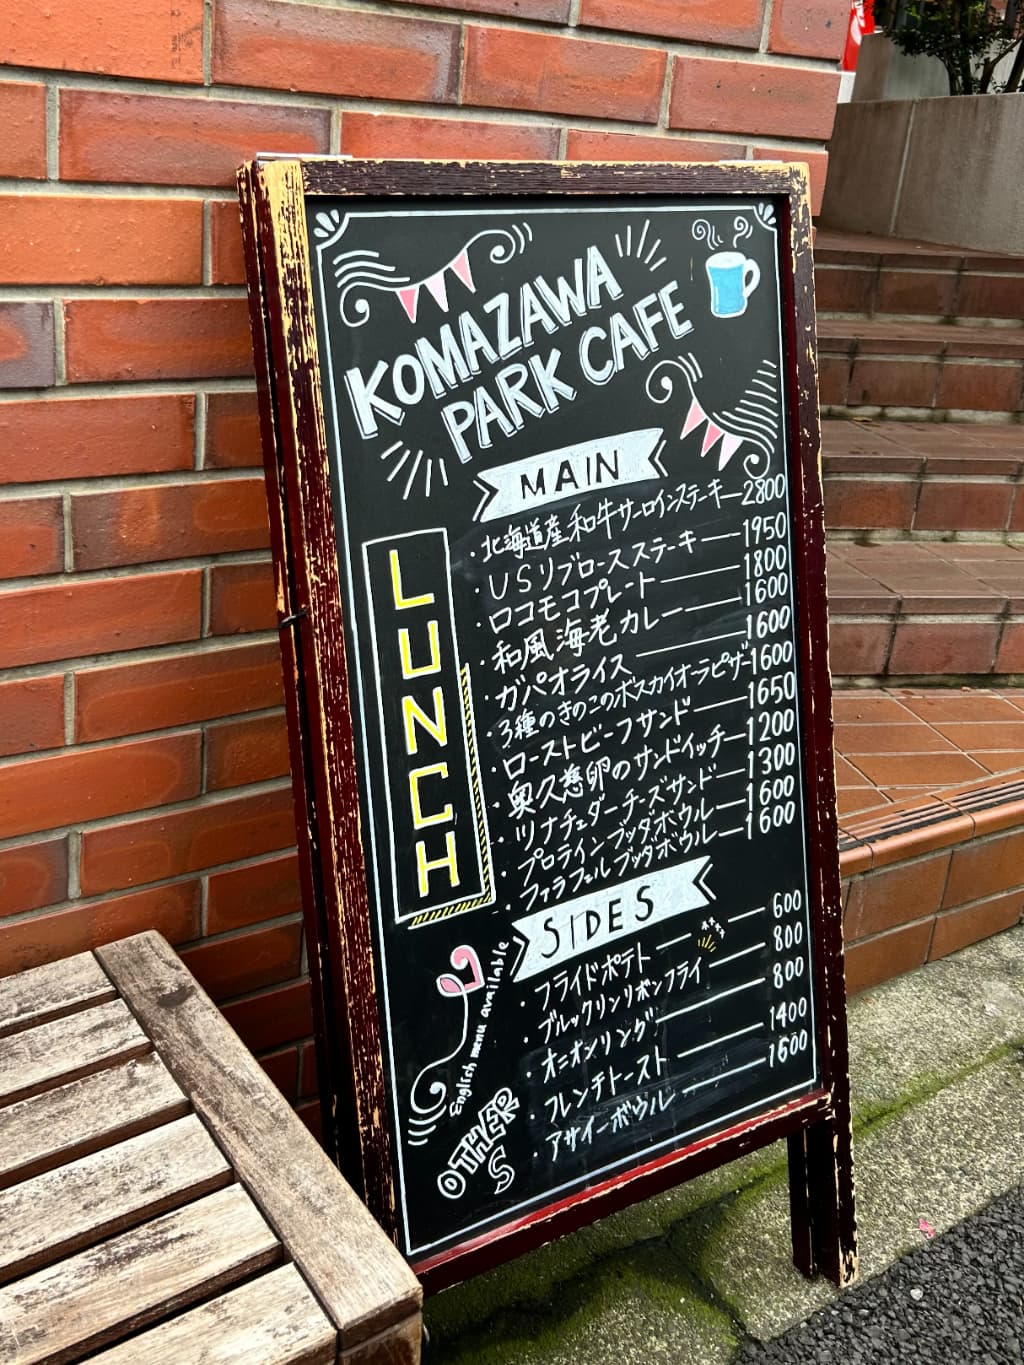 KOMAZAWA
PARK CAFE
MAIN
LUNCH
・北海道産和牛サーロインステーキ—2800
・USリブロースステーキ—1950
・ロコモコプレート—1800
・和風海老カレー—1600
・ガパオライス—1600
・3種のきのこのボスカイオーラピザ—1600
・ローストビーフサンド—1650
・奥久慈卵のサンドイッチ—1200
・ツナチェダーチーズサンド—1300
・プロテインブッダボウル—1600
・ファラフェルブッダボウル—1600
SIDES
・フライドポテト—600
・ブルックリンリボンフライ—800
・オニオンリング—800
・フレンチトースト—1400
・アサイーボウル—1600
English menu available
OTHERS